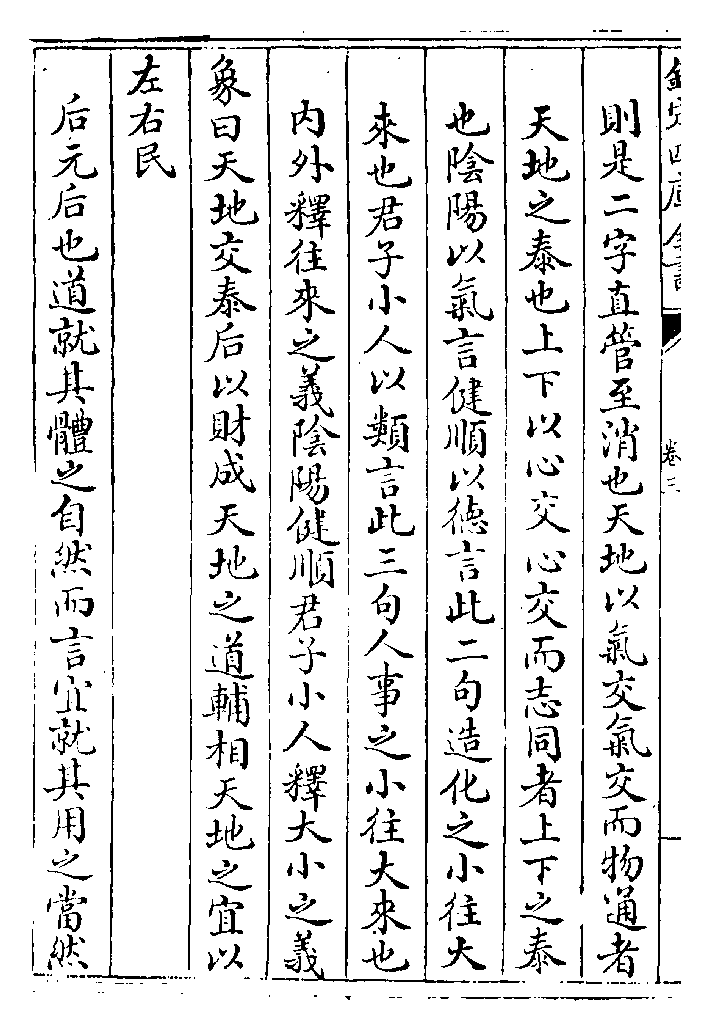 欽定四庫全書
卷三
則是二字直管至消也天地以氣交氣交而物通者
天地之泰也上下以心交心交而志同者上下之泰
也陰陽以氣言健順以德言此二句造化之小往大
來也君子小人以類言此三句人事之小往大來也
內外釋往來之義陰陽健順君子小人釋大小之義
象曰天地交泰后以財成天地之道輔相天地之宜以
左右民
后元后也道就其體之自然而言宜就其用之當然